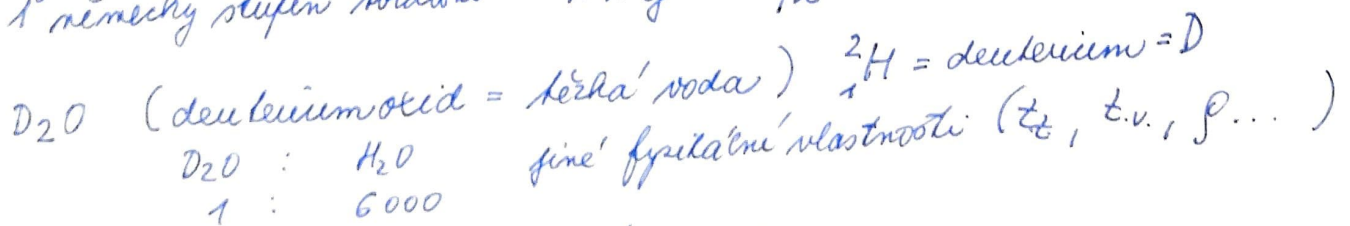 1 německý stupeň
D₂O (deuteriumoxid = těžká voda) ²₁H = deuterium = D
D₂O : H₂O jiné fyzikální vlastnosti (t_t, t.v., ρ... )
1 : 6000